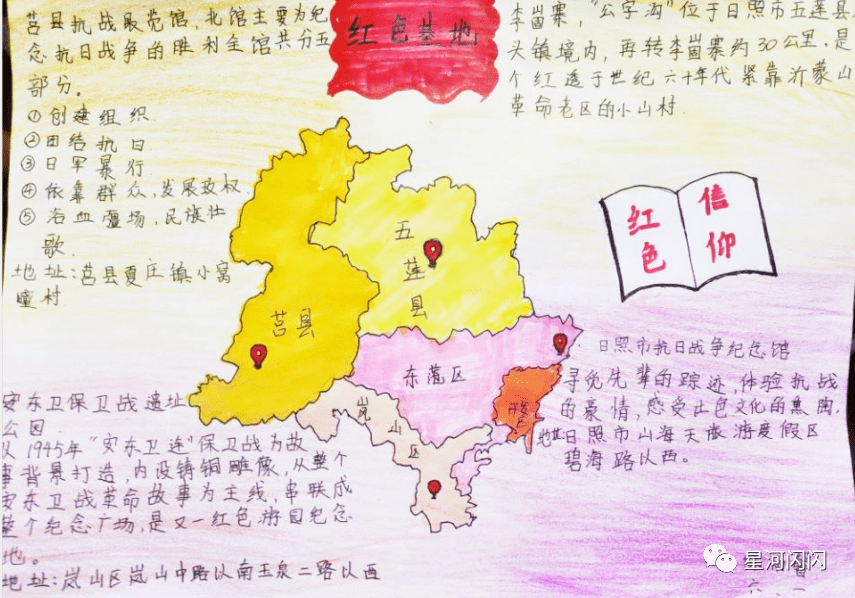 红色基地
莒县抗战展览馆,北馆主要为纪
念抗日战争的胜利全馆共分五
部分。
①创建组织
②团结抗日
③日军暴行
④依靠群众,发展政权.
⑤浴血疆场,民族壮
歌.
地址:莒县夏庄镇小窝
疃村.
李崮寨,“公字沟”位于日照市五莲县
头镇境内,再转李崮寨约30公里.是
个红透于世纪六十年代紧靠沂蒙山
革命老区的小山村.
红色
信仰
五莲县
莒县
东港区
岚山区
开发区
日照市抗日战争纪念馆
寻觅先辈的踪迹,体验抗战
的豪情,感受红色文化的熏陶.
地址日照市山海天旅游度假区
碧海路以西。
安东卫保卫战遗址
公园.
以1945年“安东卫连”保卫战为故
事背景打造,内设铸铜雕像,从整个
安东卫战革命故事为主线,串联成
整个纪念广场,是又一红色游园纪念
地。
地址:岚山区岚山中路以南玉泉二路以西
星河闪闪
六.一